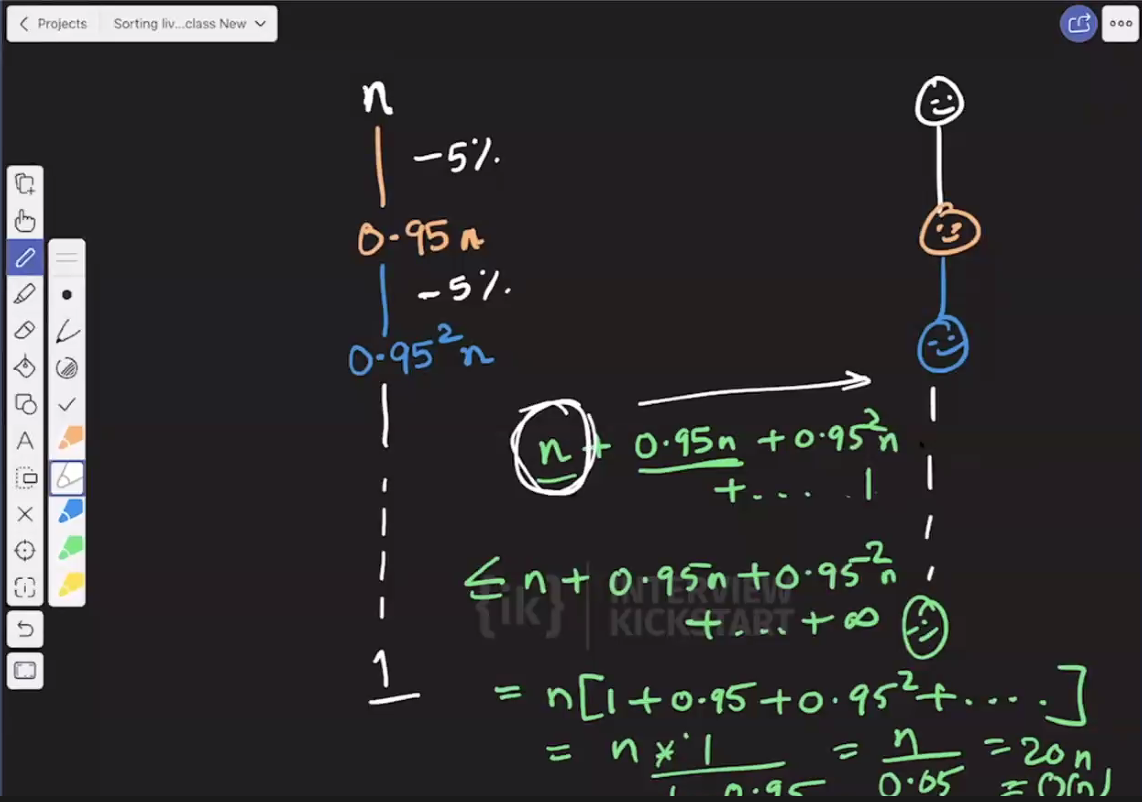 Projects Sorting liv...class New
n
-5%.
0.95n
-5%.
0.95²n
n + 0.95n + 0.95²n
+ .... 1
≤ n + 0.95n + 0.95²n
+ ... + ∞
{ik} INTERVIEW
KICKSTART
1
= n[1 + 0.95 + 0.95² + .....]
= n * 1 = n = 20n
1 - 0.95 0.05 = O(n)
A